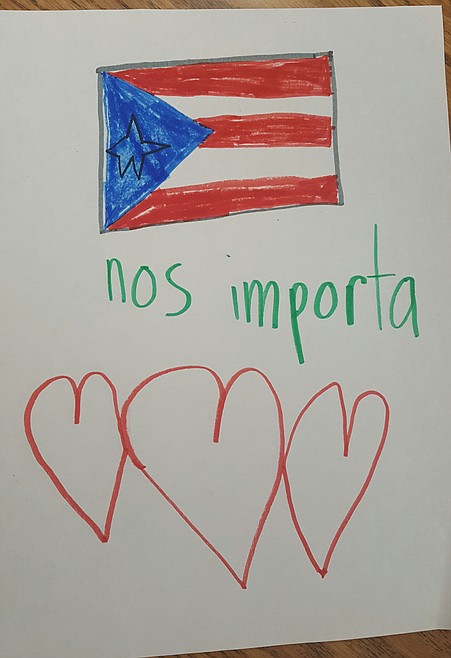 nos importa